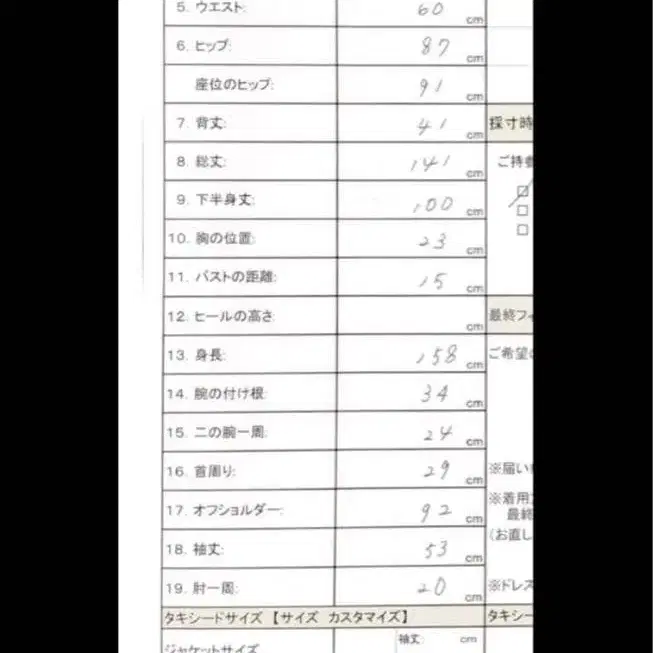 5. ウエスト: 60 cm
6. ヒップ: 87 cm
座位のヒップ: 91 cm
7. 背丈: 41 cm 採寸時
8. 総丈: 141 cm ご持参
9. 下半身丈: 100 cm
10. 胸の位置: 23 cm
11. バストの距離: 15 cm
12. ヒールの高さ: cm 最終フィ
13. 身長: 158 cm ご希望の
14. 腕の付け根: 34 cm
15. 二の腕一周: 24 cm
16. 首周り: 29 cm ※届い
17. オフショルダー: 92 cm ※着用
最終
(お直し
18. 袖丈: 53 cm
19. 肘一周: 20 cm ※ドレス
タキシードサイズ【サイズ カスタマイズ】 タキシー
ジャケットサイズ 袖丈: cm